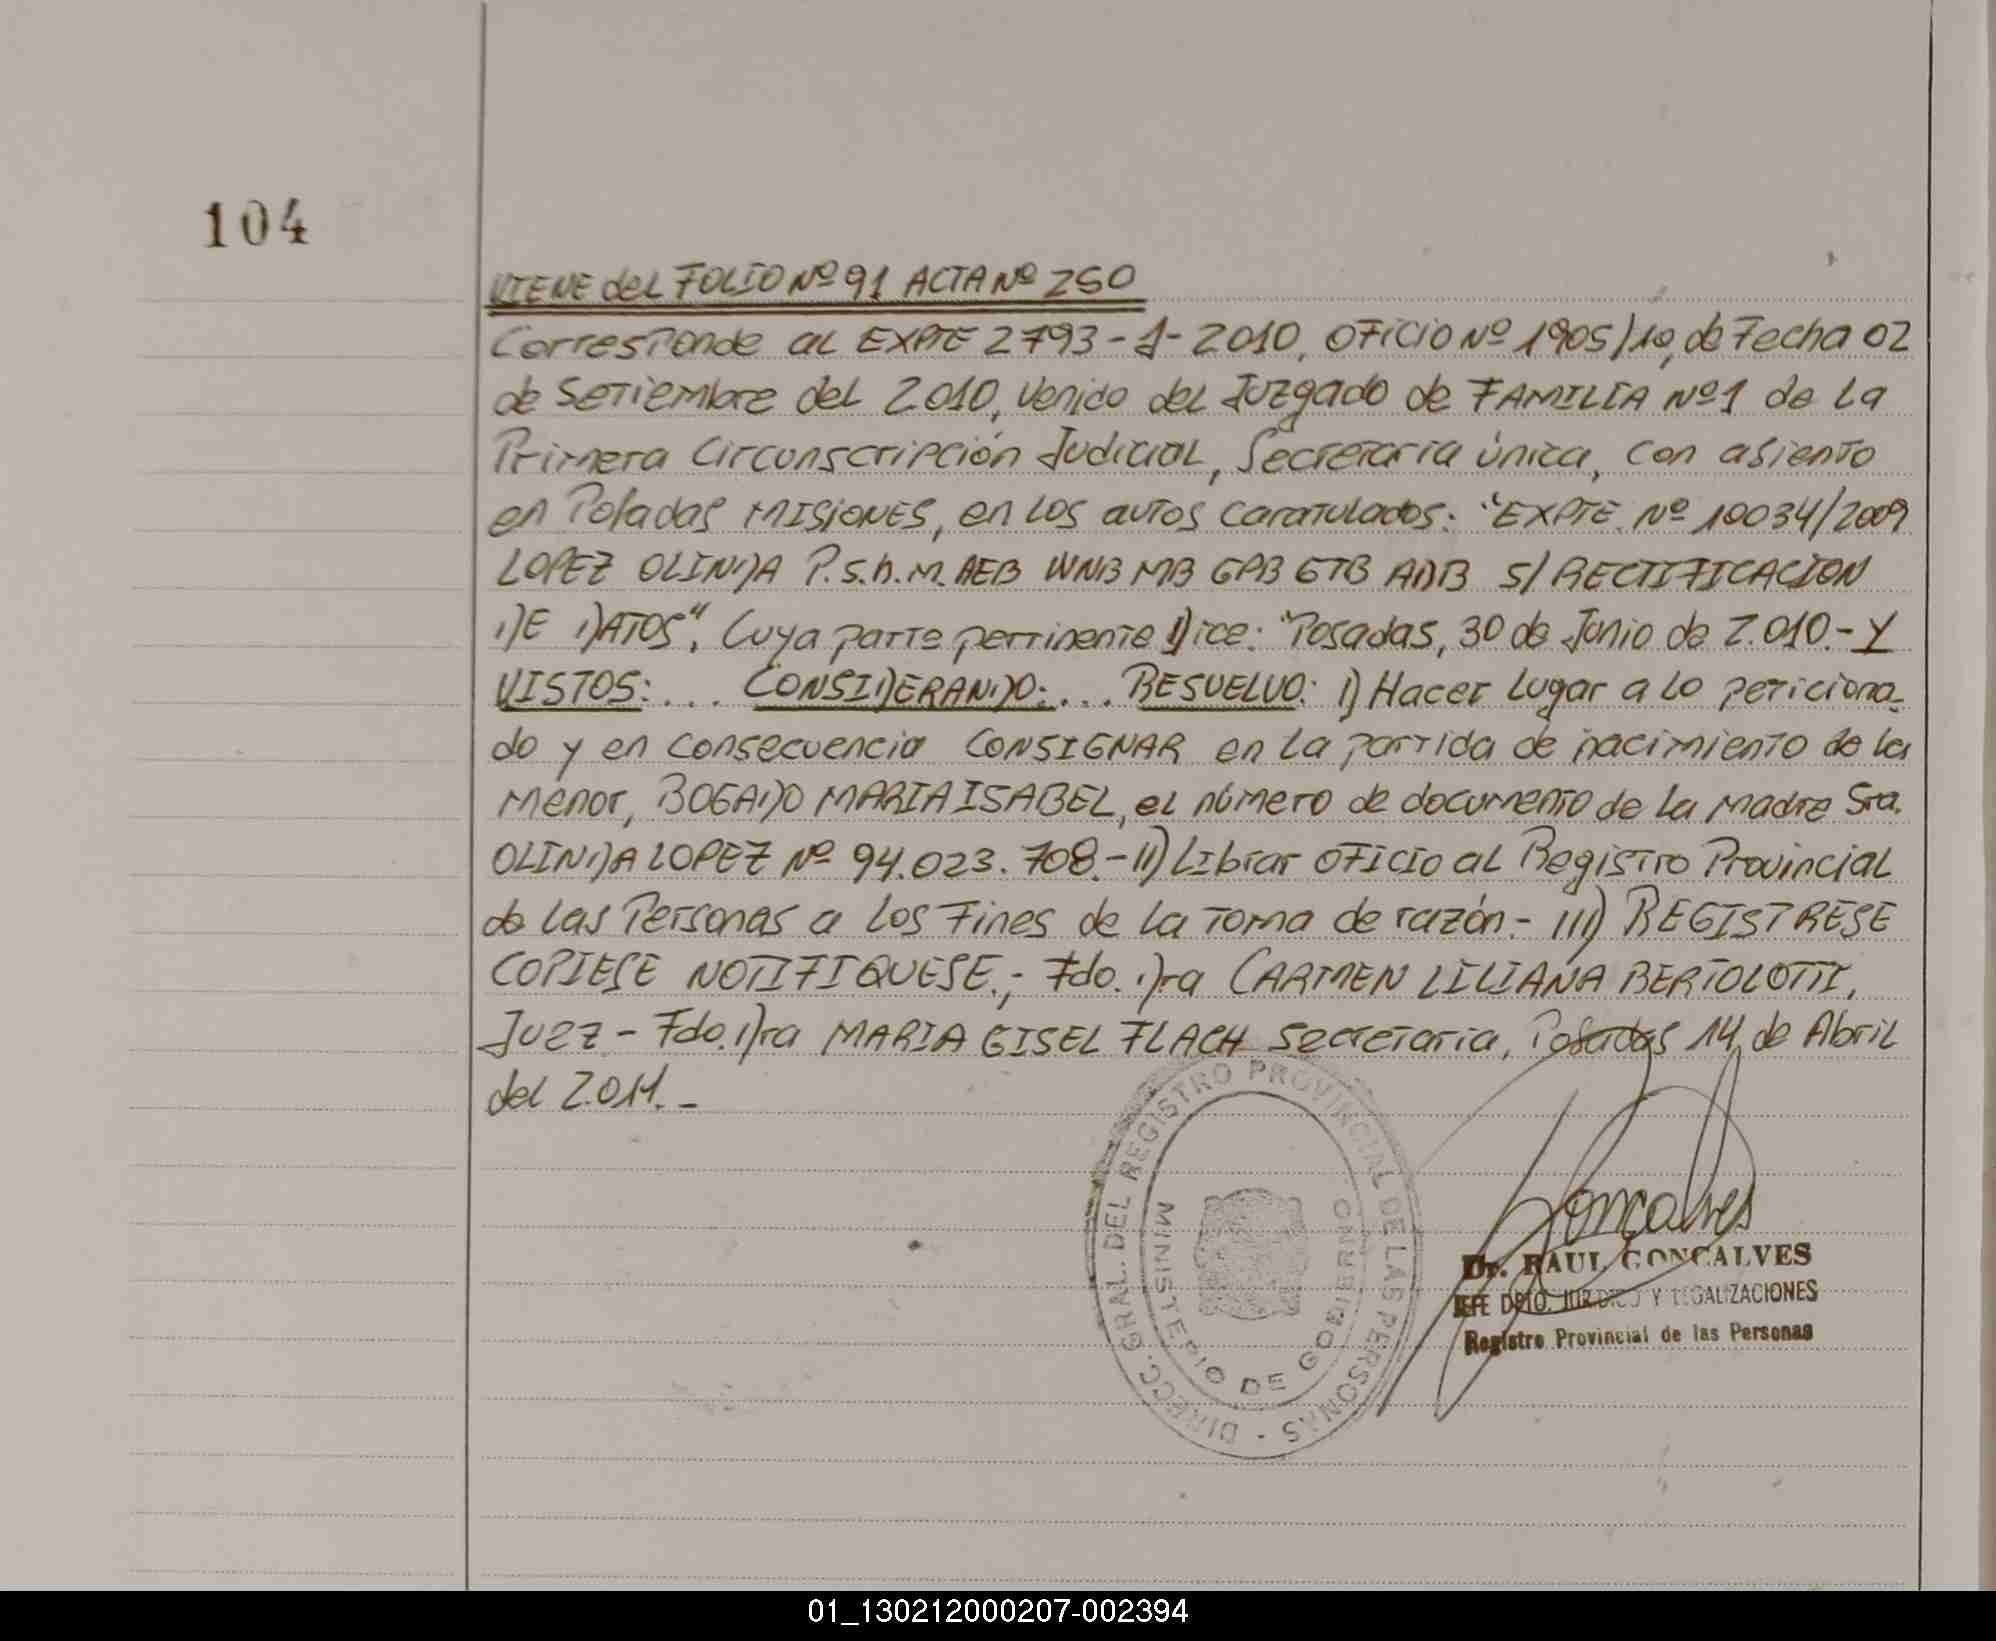 104
VIENE del FOLIO Nº 91 ACTA Nº 250
Corresponde al EXPTE 2793-J-2010, oficio Nº 1905/10, de Fecha 02
de Setiembre del 2010, venido del Juzgado de FAMILIA Nº 1 de la
Primera Circunscripción Judicial, Secretaria única, con asiento
en Posadas MISIONES, en los autos caratulados: "EXPTE Nº 10034/2009
LOPEZ OLINDA P.s.h.m. AEB WNB MB GPB GTB ADB S/ RECTIFICACION
DE DATOS", Cuya parte pertinente Dice: "Posadas, 30 de Junio de 2.010.- Y
VISTOS:... CONSIDERANDO:... RESUELVO: I) Hacer lugar a lo peticiona-
do y en consecuencia CONSIGNAR en la partida de nacimiento de la
menor, BOGADO MARIA ISABEL, el número de documento de la madre Sra.
OLINDA LOPEZ Nº 94.023.708.- II) Librar oficio al Registro Provincial
de las Personas a los Fines de la toma de razón.- III) REGISTRESE
COPIESE NOTIFIQUESE.; Fdo. Dra CARMEN LILIANA BERTOLOTTI,
Juez - Fdo. Dra MARIA GISEL FLACH Secretaria, Posadas 14 de Abril
del 2.011.-
DIRECC. GRAL. DEL REGISTRO PROVINCIAL DE LAS PERSONAS -
MINISTERIO DE GOBIERNO
Gonçalves
Dr. RAUL GONCALVES
JEFE DPTO. JURIDICO Y LEGALIZACIONES
Registro Provincial de las Personas
01_130212000207-002394